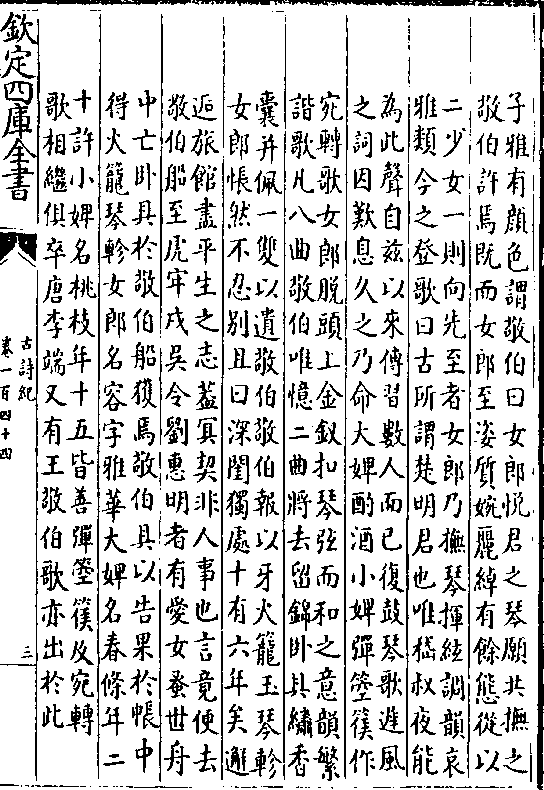 子雅有顔色謂敬伯曰女郎悅君之琴願共撫之
敬伯許焉既而女郎至姿質婉麗綽有餘態從以
二少女一則向先至者女郎乃撫琴揮絃調韻哀
雅類今之登歌曰古所謂楚明君也唯嵇叔夜能
為此聲自兹以來傳習數人而已復鼓琴歌遲風
之詞因歎息久之乃命大婢酌酒小婢彈箜篌作
宛轉歌女郎脫頭上金釵扣琴弦而和之意韻繁
諧歌凡八曲敬伯唯憶二曲將去留錦卧具繡香
囊并佩一雙以遺敬伯敬伯報以牙火籠玉琴軫
女郎悵然不忍别且曰深閨獨處十有六年矣邂
逅旅館盡平生之志葢冥契非人事也言竟便去
敬伯船至虎牢戍吳令劉惠明者有愛女蚤世舟
中亡卧具於敬伯船獲焉敬伯具以告果於帳中
得火籠琴軫女郎名容字雅華大婢名春條年二
十許小婢名桃枝年十五皆善彈箜篌及宛轉
歌相繼俱卒唐李端又有王敬伯歌亦出於此
欽定四庫全書
古詩紀
卷一百四十四
三